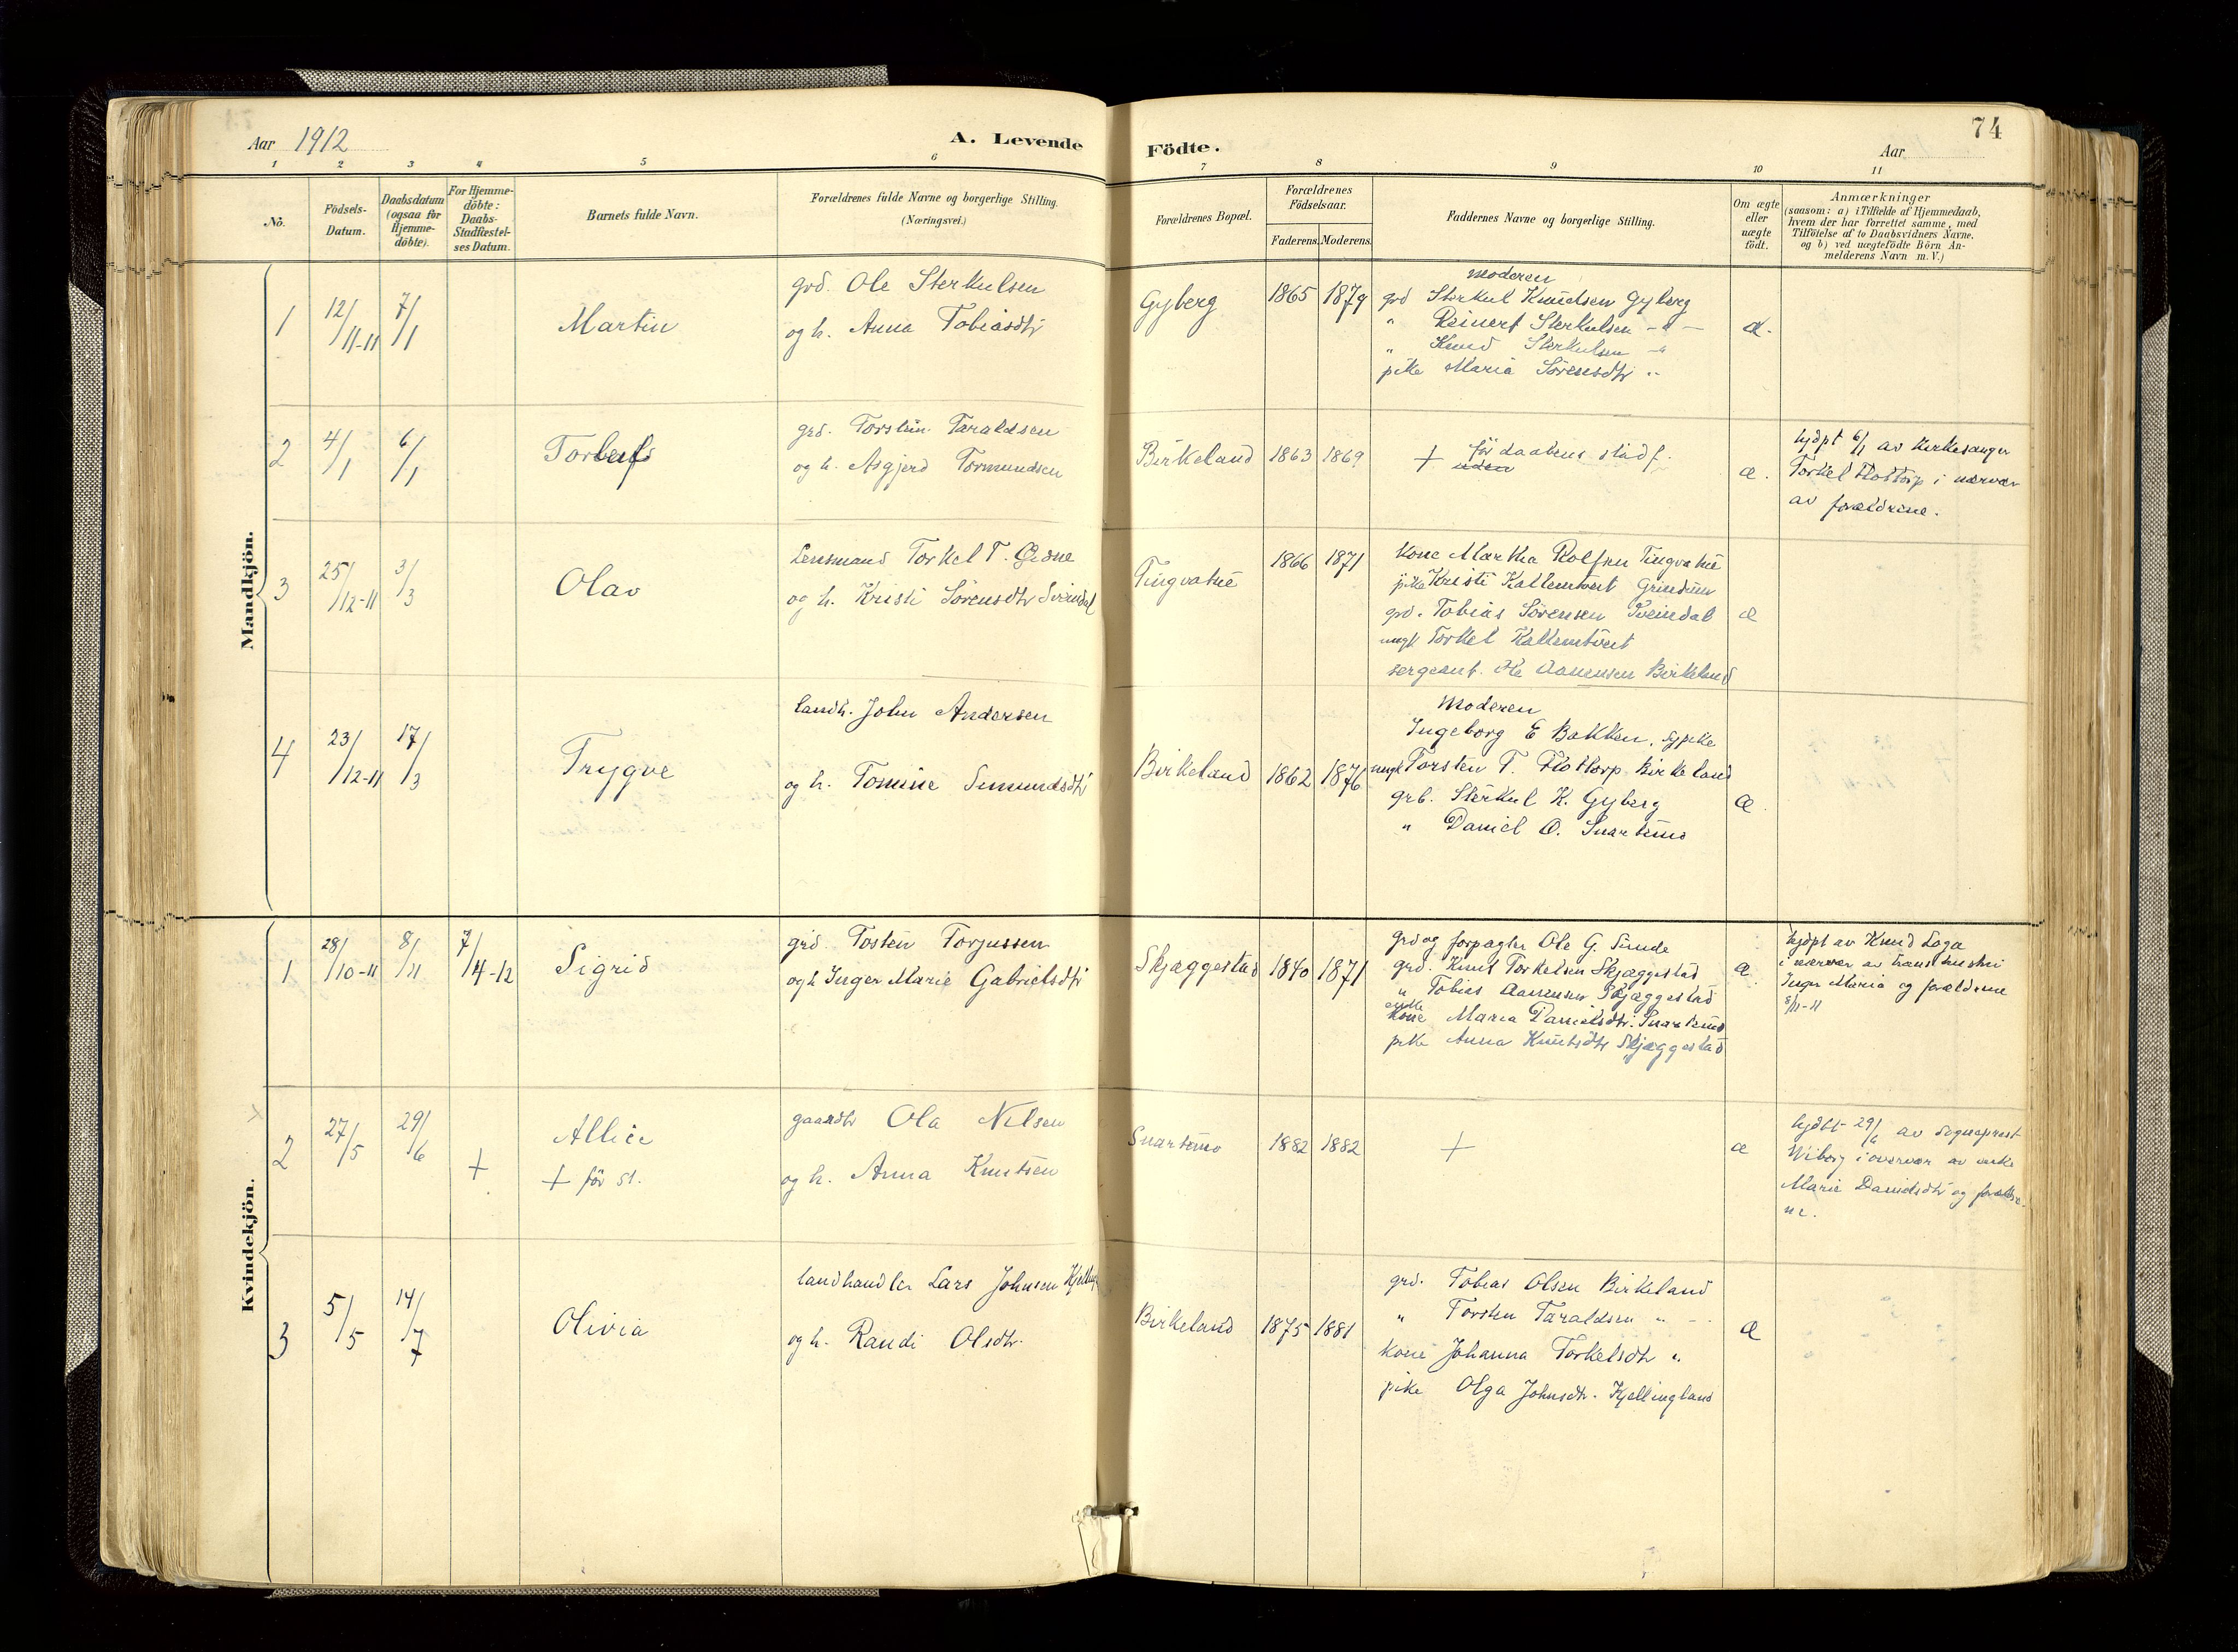 74
Aar 1912
A. Levende Födte.
Aar
1 2 3 4 5 6 7 8 9 10 11
No.
Födsels-
Datum.
Daabsdatum
(ogsaa for
Hjemme-
döbte).
For Hjemme-
döbte:
Daabs-
Stadfæstel-
ses Datum.
Barnets fulde Navn.
Forældrenes fulde Navne og borgerlige Stilling.
(Næringsvei.)
Forældrenes Bopæl.
Forældrenes
Födselsaar.
Faderens. Moderens.
Faddernes Navne og borgerlige Stilling.
Om ægte
eller
uægte
födt.
Anmærkninger
(saasom: a) i Tilfælde af Hjemmedaab,
hvem der har forrettet samme, med
Tilföielse af to Daabsvidners Navne.
og b) ved uægtefödte Börn An-
melderens Navn m. V.)
Mandkjön.
1
12/11-11
7/1
Martin
grd. Ole Sterkulsen
og h. Anna Tobiasdtr
Gyberg
1865
1879
Moderen
grd Sterkul Knudsen Gyberg
" Reinert Sterkulsen - " -
" Knud Sterkulsen - "
pike Maria Sörensdtr "
æ.
2
4/1
6/1
grd. Torstein Taraldsen
og h. Asgjerd Tormundsen
Birkeland
1863
1869
+ för daabens stadf.
uden
æ.
hjdpt 6/1 av Kirkesanger
Torkel Flottorp i nærvær
av forældrene.
3
25/12-11
3/3
Olav
Lensmand Torkel T. Øidne
og h. Kristi Sörensdtr Sveindal
Tingvatne
1866
1871
Kone Martha Rolfsen Tingvatne
pike Kristi Kallemtveit Grindum
grd. Tobias Sörensen Sveindal
ungk Torkel Kallemtveit
sergeant. Ole Aanensen Birkeland
æ
4
23/12-11
17/3
Trygve
landh. John Andersen
og h. Tomine Simundsdtr
Birkeland
1862
1876
Moderen
Ingeborg E Bakken, sypike
ungk Torsten T. Flottorp Birkeland
grb. Sterkul K. Gyberg
" Daniel O. Snartemo
æ.
Kvindekjön.
1
28/10-11
8/11
7/4-12
Sigrid
grd. Tosten Torjussen
og h Inger Marie Gabrielsdtr
Skjæggestad
1840
1871
grd og forpagter Ole G. Sunde
grd. Knut Torkelsen Skjæggestad
" Tobias Aanensen Skjæggestad
enke
Kone Maria Danielsdtr. Snartemo
pike Anna Knutsdtr Skjæggestad
æ.
hjdpt av Knud Loga
i nærvær av hans hustru
Inger Maria og forældrene
8/11-11
2
27/5
29/6
+
Allice
+ för st.
gaardbr Ola Nilsen
og h. Anna Knutsen
Snartemo
1882
1882
+
æ
hjdbt 29/6 av Sogneprest
Wiborg i overvær av enke
Marie Danielsdtr og forældre-
ne.
3
5/5
14/7
Olivia
landhandler Lars Johnsen
og h. Randi Olsdtr.
Birkeland
1875
1881
grd. Tobias Olsen Birkeland
" Torsten Taraldsen " -
Kone Johanna Torkelsdtr "
pike Olga Johnsdtr. Kjellingland
æ